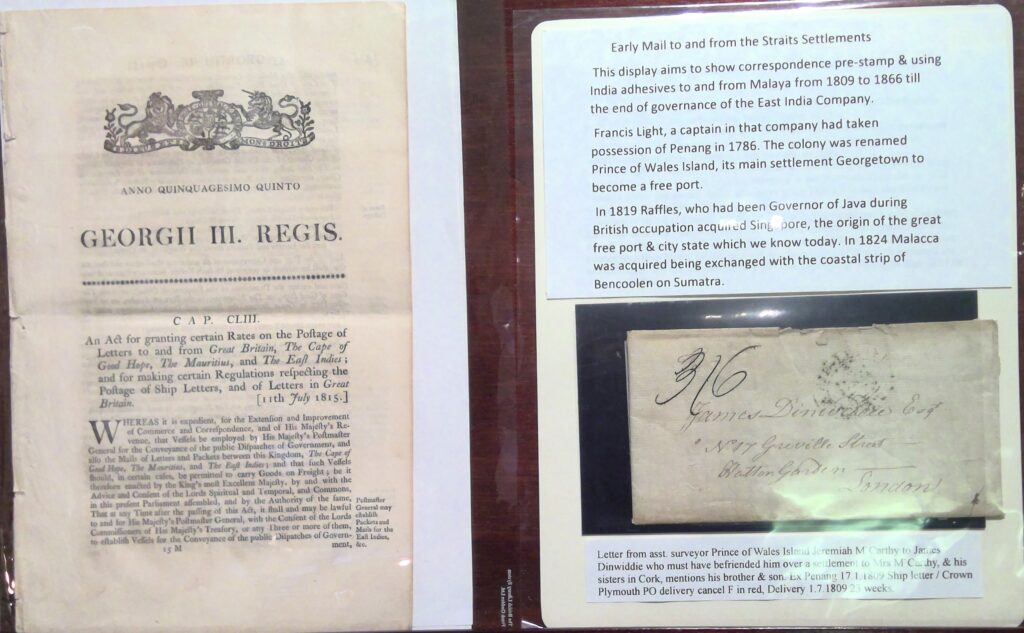 ANNO QUINQUAGESIMO QUINTO
GEORGII III. REGIS.
CAP. CLIII.
An Act for granting certain Rates on the Postage of
Letters to and from Great Britain, The Cape of
Good Hope, The Mauritius, and The East Indies;
and for making certain Regulations respecting the
Postage of Ship Letters, and of Letters in Great
Britain. [11th July 1815.]
WHEREAS it is expedient, for the Extension and Improvement
of Commerce and Correspondence, and of His Majesty's Re-
venue, that Vessels be employed by His Majesty's Postmaster
General for the Conveyance of the public Dispatches of Government, and
also the Mails of Letters and Packets between this Kingdom, The Cape of
Good Hope, The Mauritius, and The East Indies; and that such Vessels
should, in certain cases, be permitted to carry Goods on Freight; be it
therefore enacted by the King's most Excellent Majesty, by and with the
Advice and Consent of the Lords Spiritual and Temporal, and Commons,
in this present Parliament assembled, and by the Authority of the same,
That at any Time after the passing of this Act, it shall and may be lawful
to and for His Majesty's Postmaster General, with the Consent of the Lords
Commissioners of His Majesty's Treasury, or any Three or more of them,
to establish Vessels for the Conveyance of the public Dispatches of Govern-
15 M ment,
Postmaster
General may
establish
Packets and
Mails for the
East Indies,
&c.
Early Mail to and from the Straits Settlements
This display aims to show correspondence pre-stamp & using
India adhesives to and from Malaya from 1809 to 1866 till
the end of governance of the East India Company.
Francis Light, a captain in that company had taken
possession of Penang in 1786. The colony was renamed
Prince of Wales Island, its main settlement Georgetown to
become a free port.
In 1819 Raffles, who had been Governor of Java during
British occupation acquired Singapore, the origin of the great
free port & city state which we know today. In 1824 Malacca
was acquired being exchanged with the coastal strip of
Bencoolen on Sumatra.
3/6
James Dinwiddie Esq
No 17 Greville Street
Hatton Garden
London
Letter from asst. surveyor Prince of Wales Island Jeremiah M Carthy to James
Dinwiddie who must have befriended him over a settlement to Mrs M Carthy, & his
sisters in Cork, mentions his brother & son. Ex Penang 17.1.1809 Ship letter / Crown
Plymouth PO delivery cancel F in red, Delivery 1.7.1809 23 weeks.